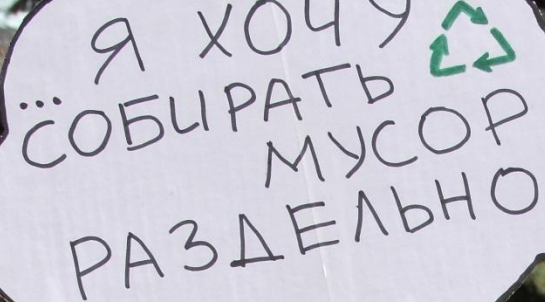 Я ХОЧУ
...СОБИРАТЬ
МУСОР
РАЗДЕЛЬНО